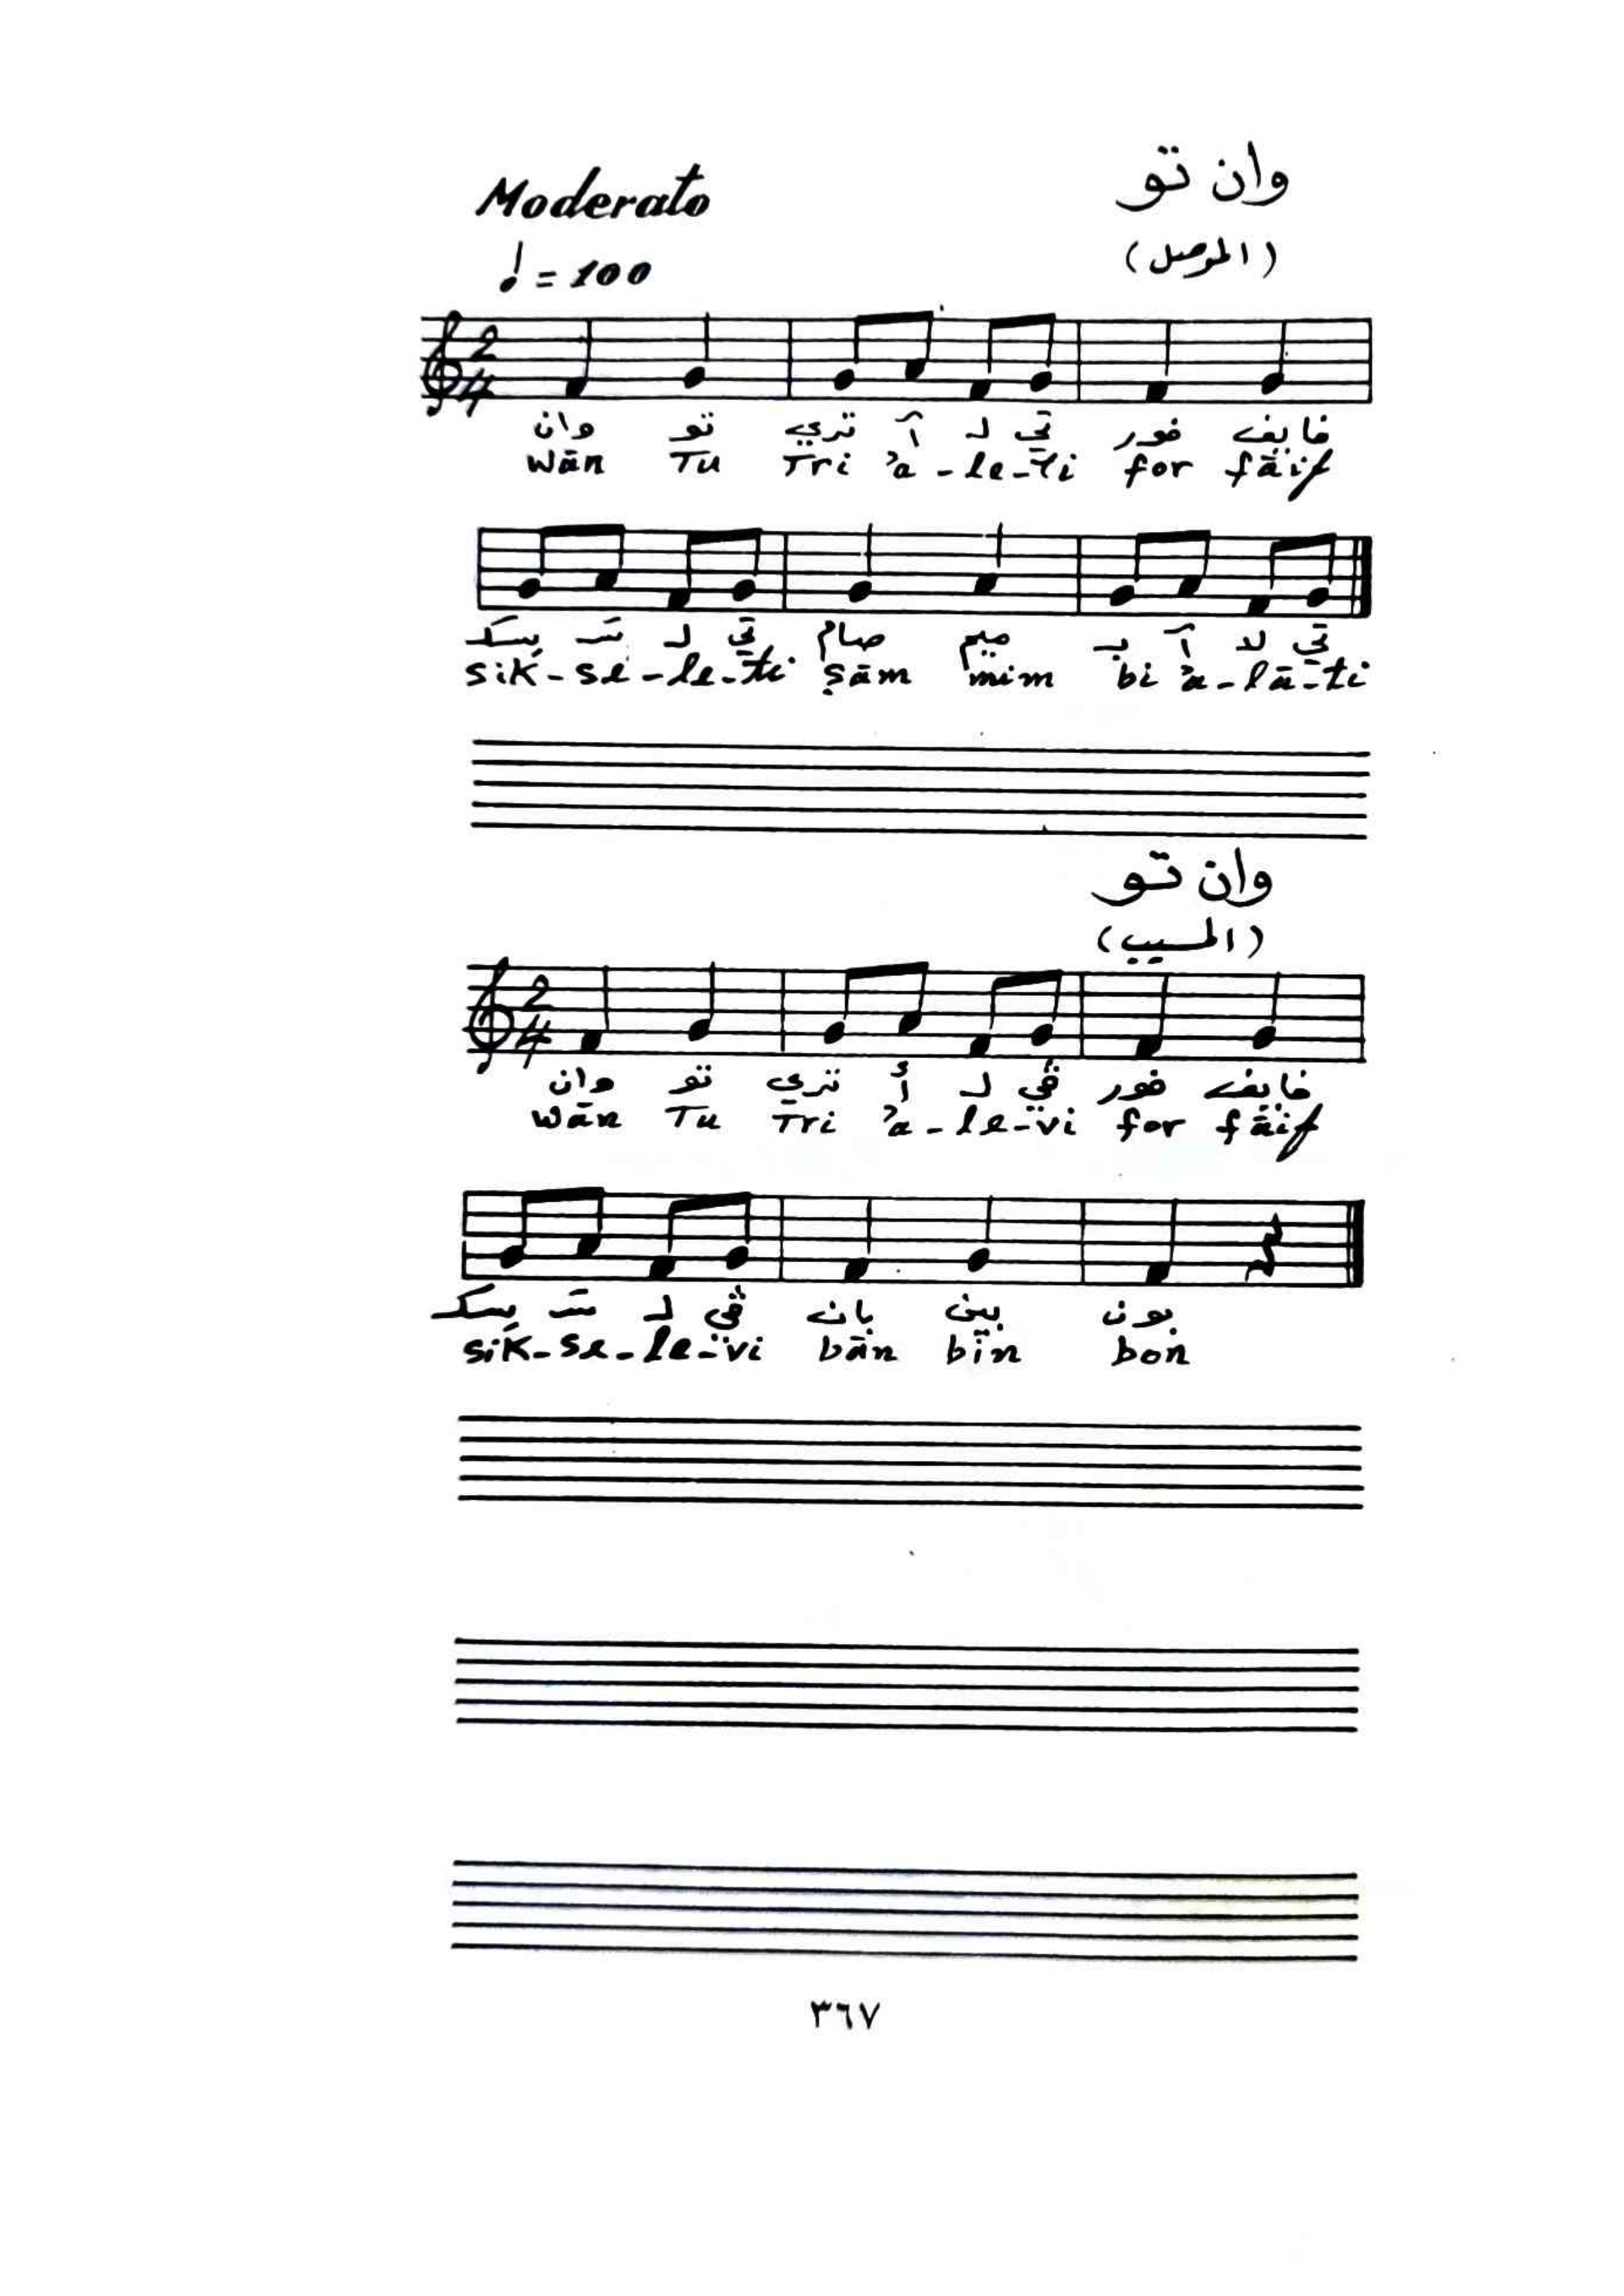 Moderato
وان تو
♩ = 100
(الموصل)
2/4
وان تو تري آ لـ تي فور فايف
Wān Tu Tri 'a - le - ti for fāif
سِكـ سَـ لـ تي صام ميم بـ آ لا تي
sik - se - le - ti ṣām mim bi 'a - lā - ti
وان تو
(المسيب)
2/4
وان تو تري أ لـ ڤي فور فايف
Wān Tu Tri 'a - le - vi for fāif
سِكـ سَـ لـ ڤي بان بين بون
sik - se - le - vi bān bin bon
٣٦٧